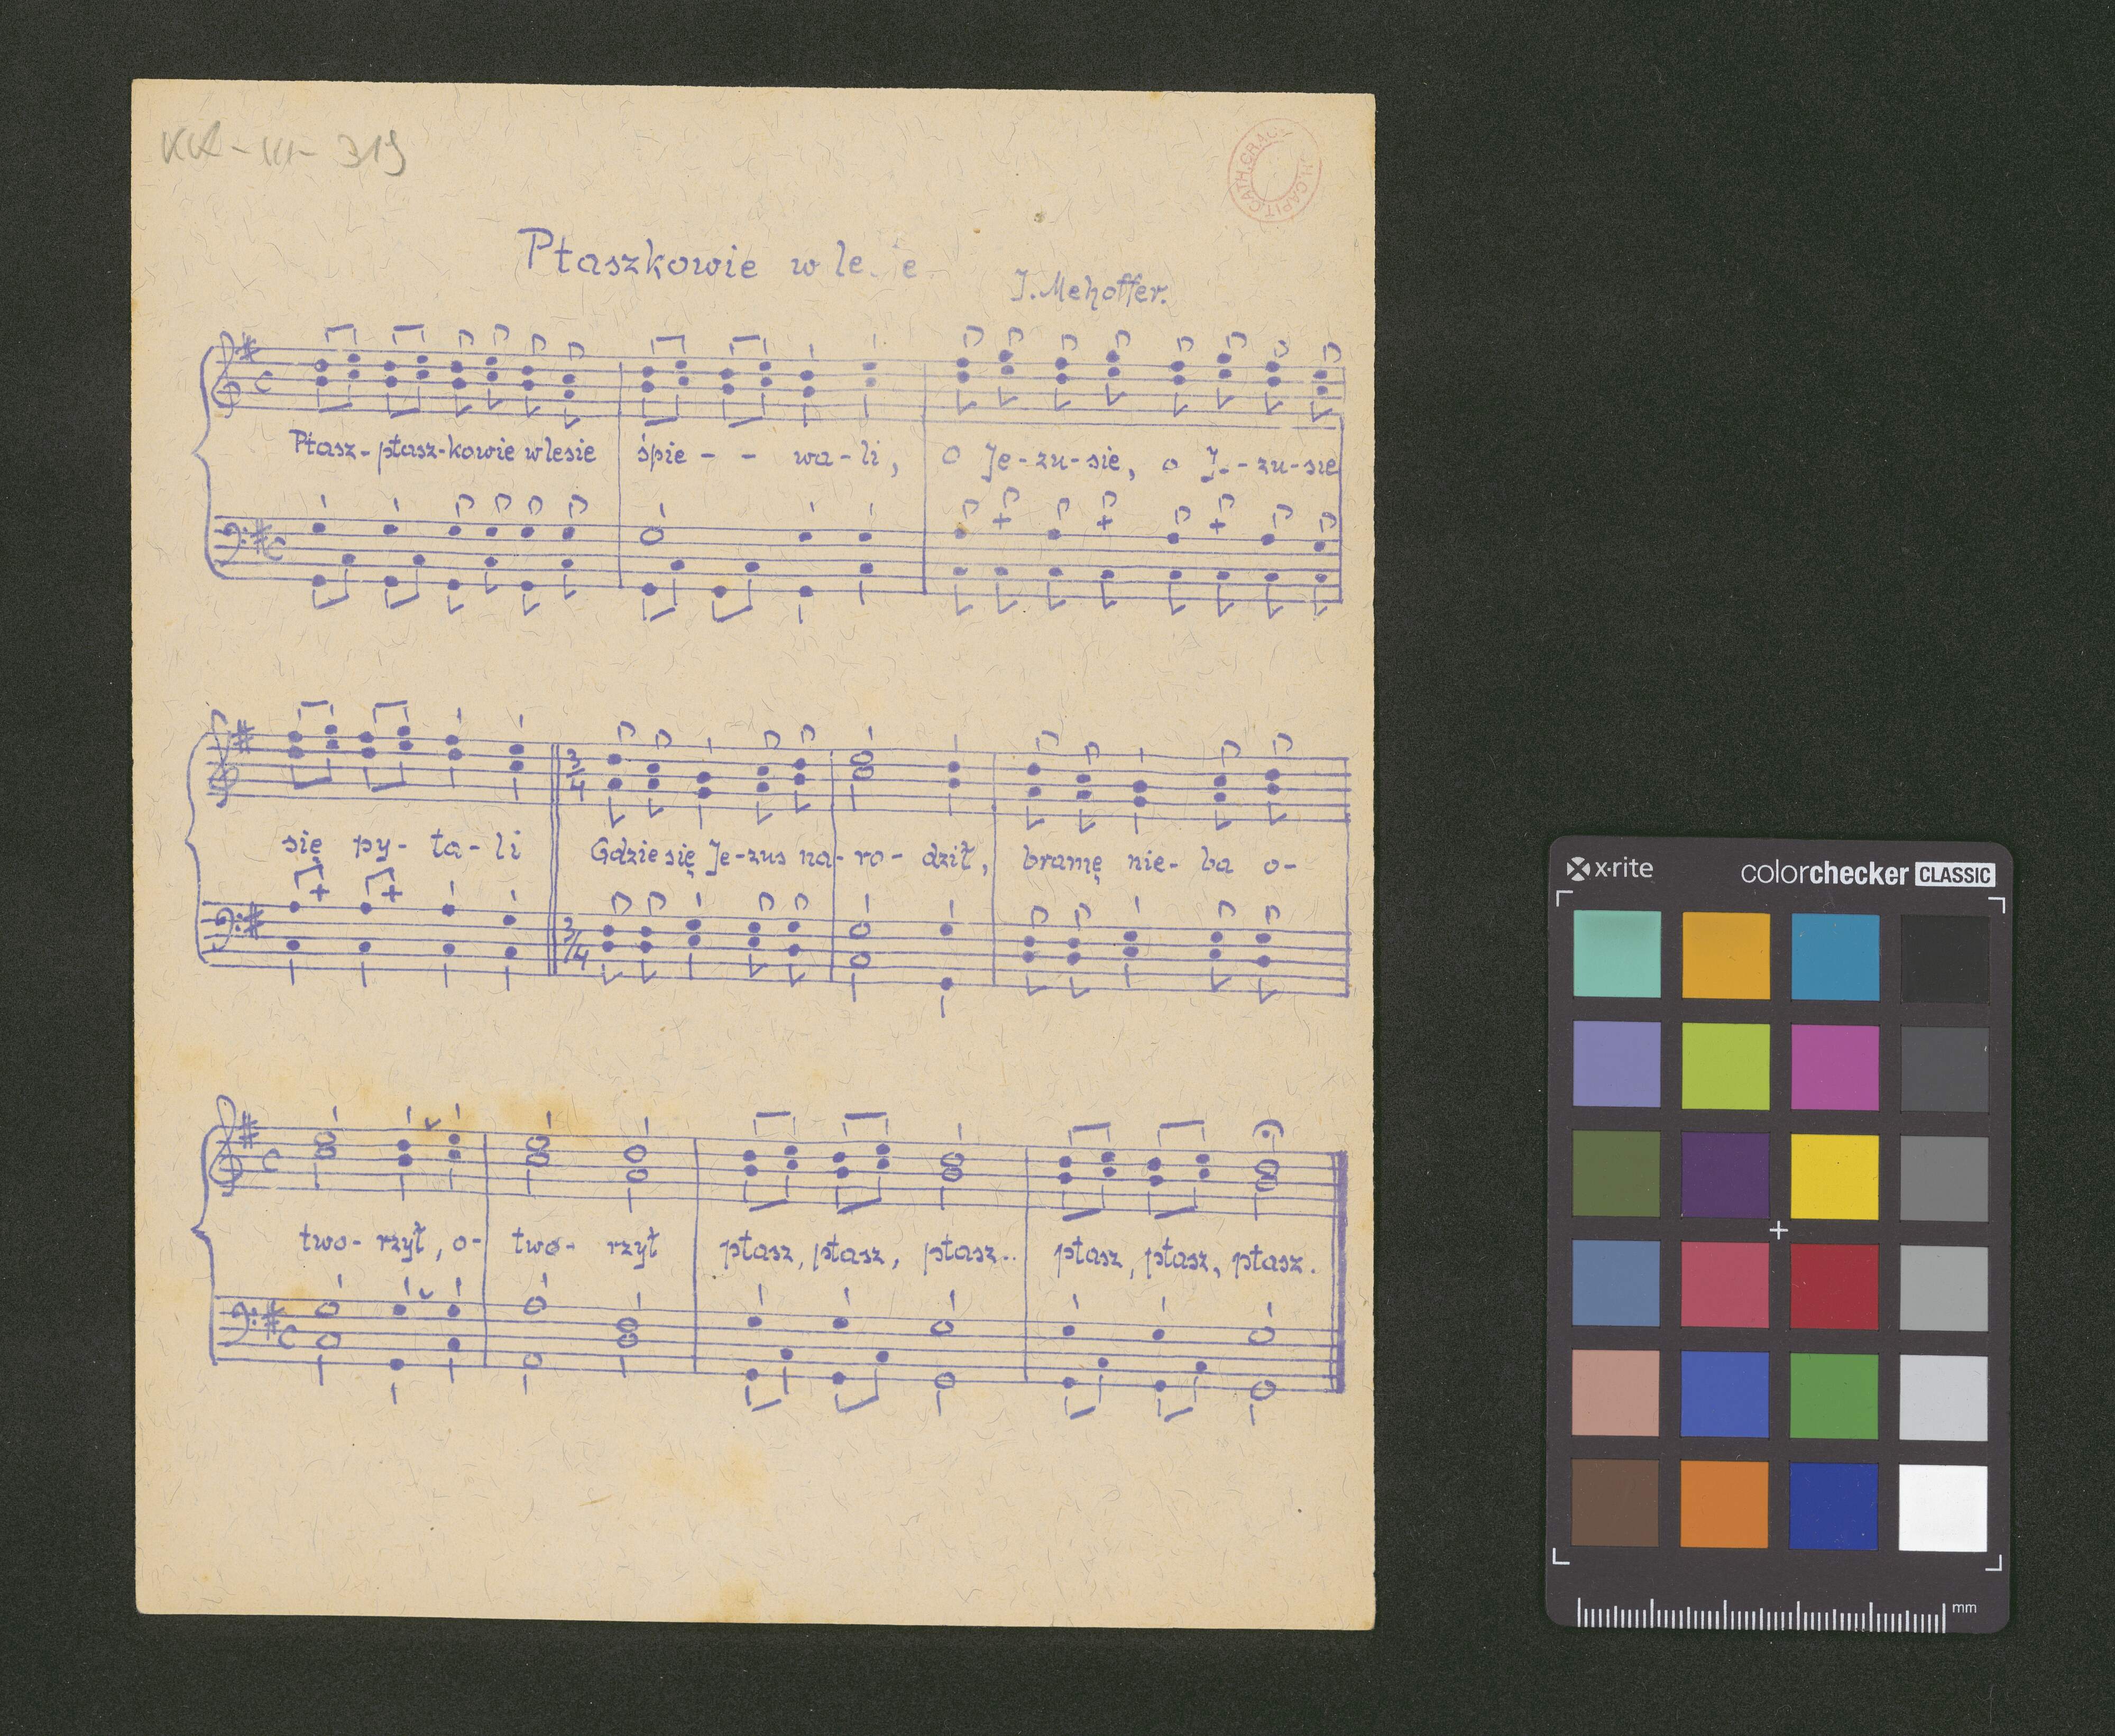 KK-III-319
CATH. CRAC.
H. CAPIT.
Ptaszkowie w le e
J. Mehoffer.
Ptasz-ptasz-kowie w lesie śpie - - wa-li, o Je-zu-sie, o J.-zu-sie
się py-ta-li Gdzie się Je-zus na-ro-dził, bramę nie-ba o-
3/4
3/4
two-rzył, o-two-rzył ptasz, ptasz, ptasz.. ptasz, ptasz, ptasz.
x-rite colorchecker CLASSIC
mm